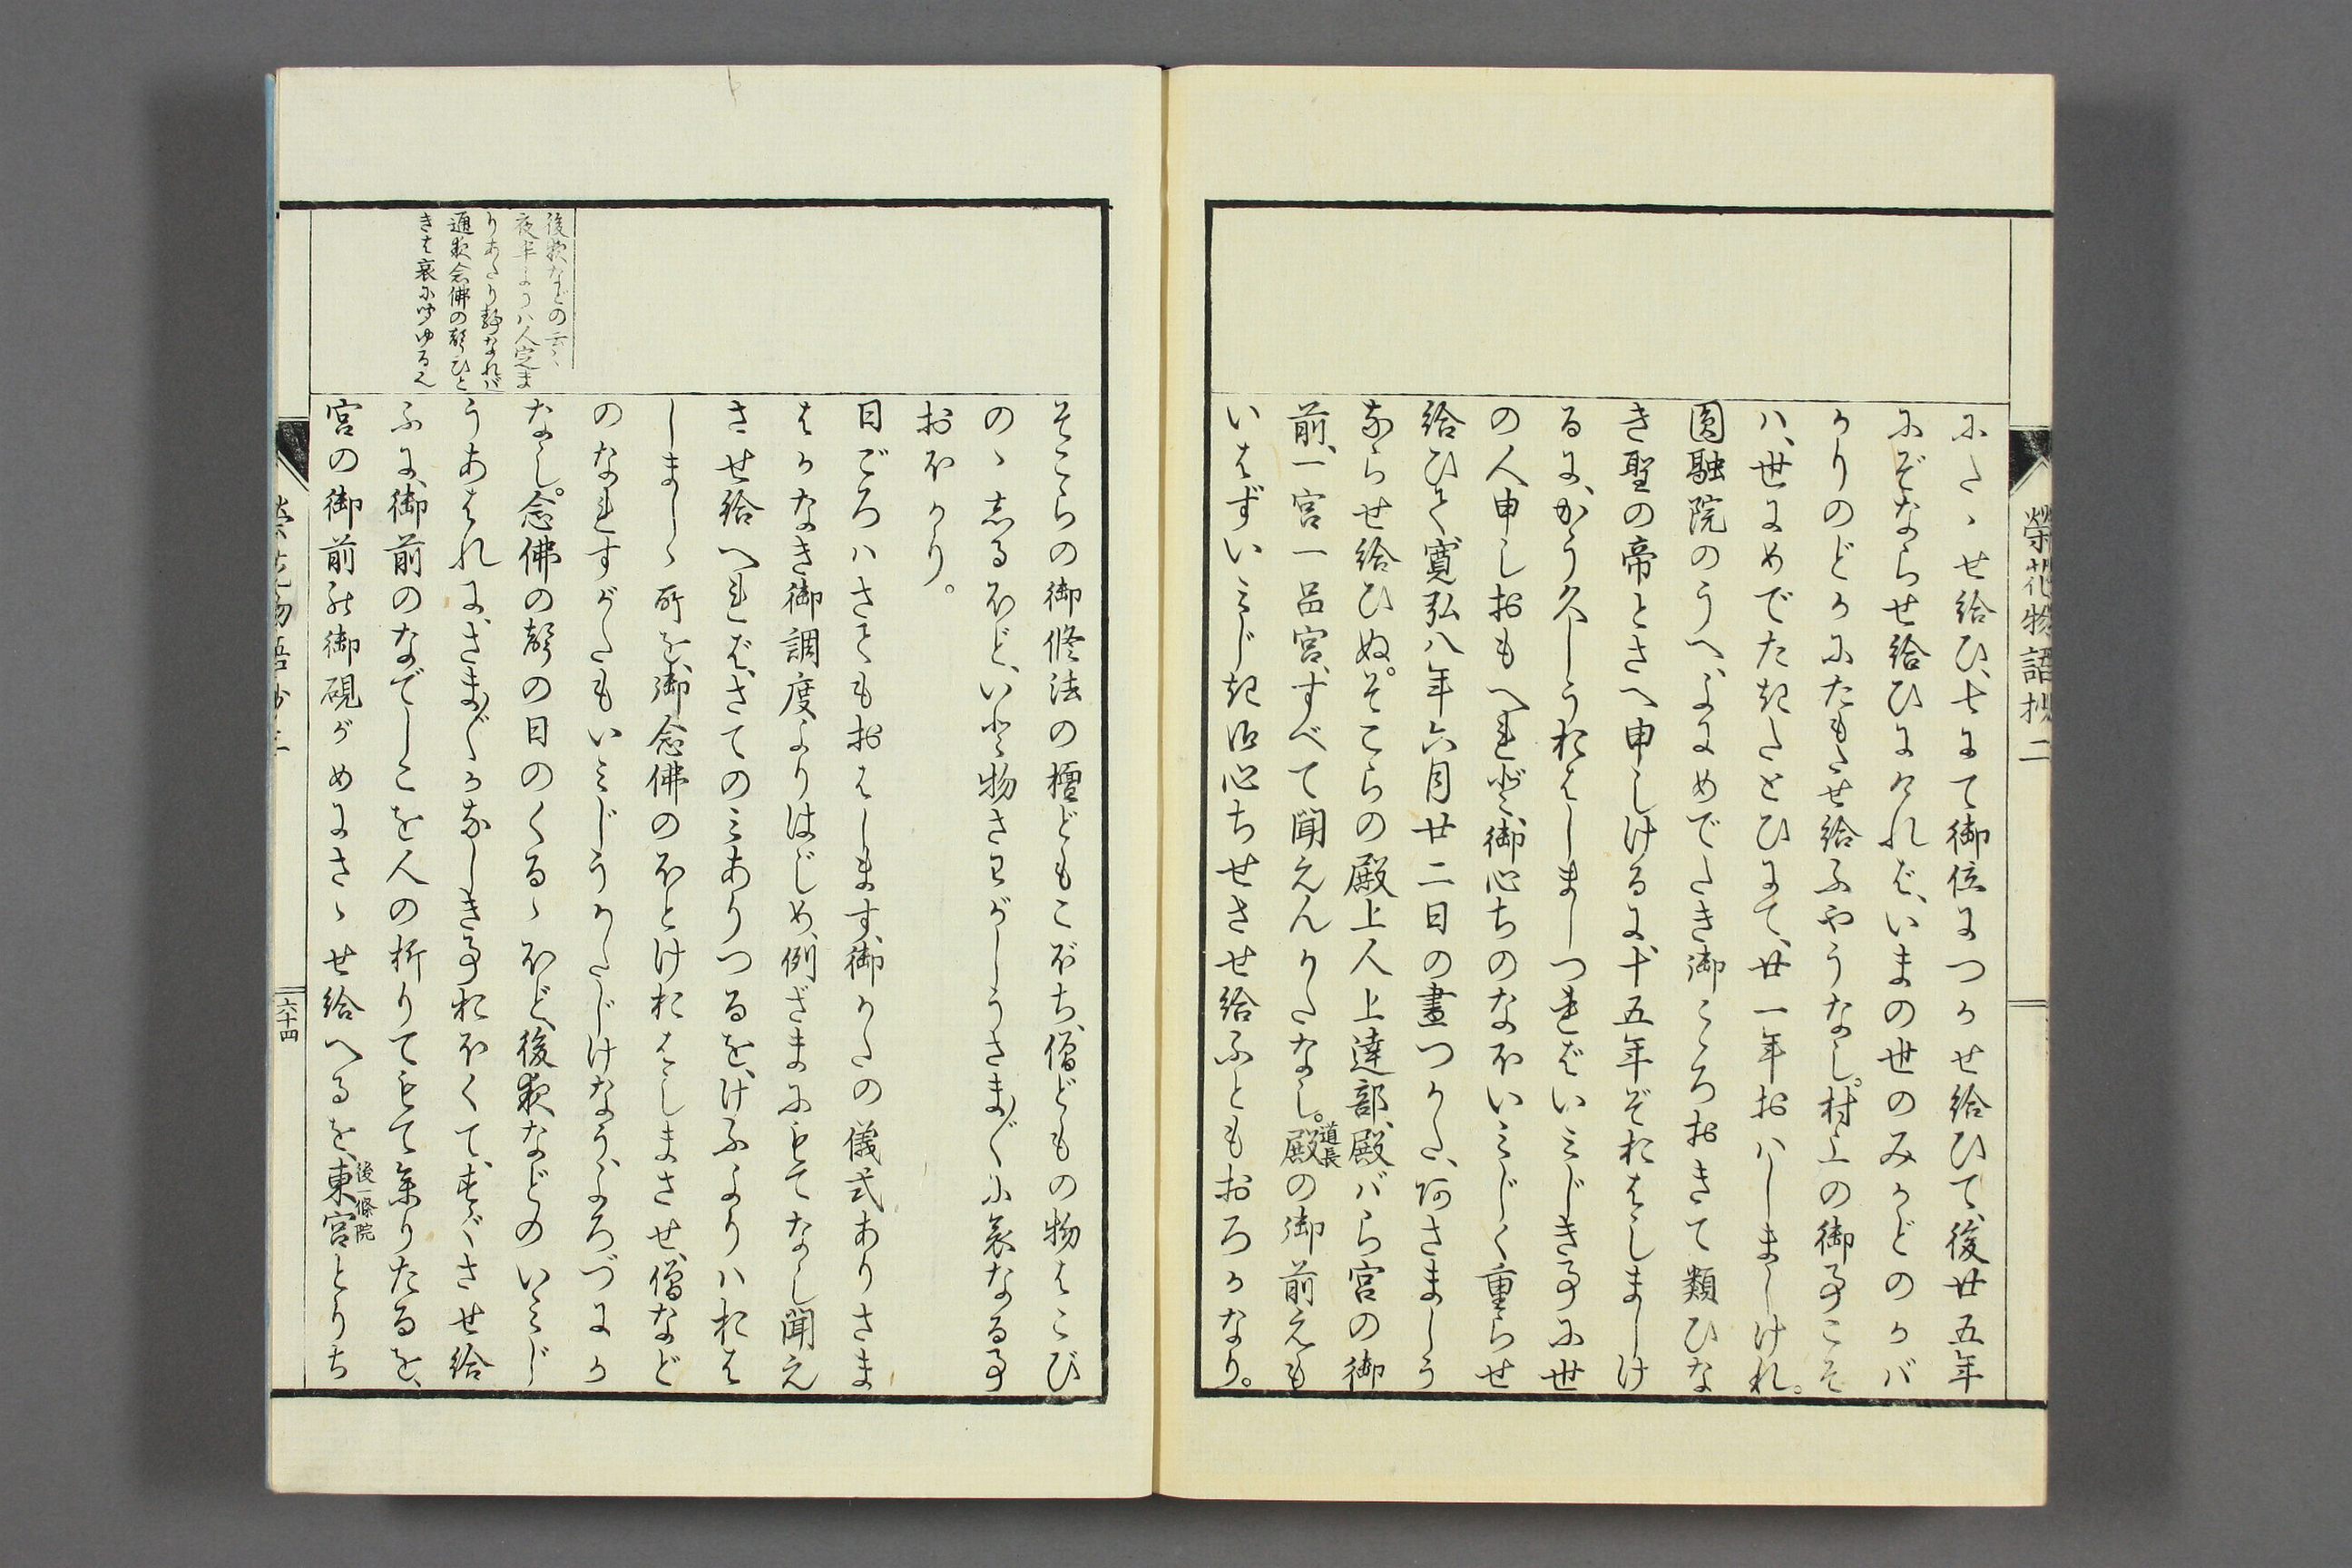 榮花物語抄二
にたゝせ給ひ、七にて御位につかせ給ひて、後廿五年
にぞならせ給ひにければ、いまの世のみかどのかバ
かりのどかにたもたせ給ふやうなし。村上の御事こそ
ハ、世にめでたきたとひにて、廿一年おハしましけれ。
圓融院のうへ、よにめでたき御こゝろおきて類ひな
き聖の帝とさへ申しけるに、十五年ぞおはしましけ
るに、かう久しうおはしましつればいみじき事に世
の人申しおもへれど、御心ちのなほいみじく重らせ
給ひて、寛弘八年六月廿二日の晝つかた、あさましう
ならせ給ひぬ。そこらの殿上人上達部、殿バら宮の御
前、一宮一品宮、すべて聞えんかたなし。殿の御前えも
道長
いはずいみじき御心ちせさせ給ふともおろかなり。
そこらの御修法の檀どもこぼち、僧どもの物はこび
のゝしるほど、いと物さわがしうさま〴〵に哀なる事
おほかり。
日ごろハさてもおはします、御かたの儀式ありさま
はかなき御調度よりはじめ、例ざまにもてなし聞え
させ給へれば、さてのみありつるを、けふよりハおは
しましゝ所を、御念佛のほとけおはしまさせ、僧など
のなれすがたもいみじうかたじけなう、よろづにか
なし。念佛の聲の日のくるゝほど、後夜などのいみじ
うあはれに、さま〴〵かなしき事おほくて、すぐさせ給
ふに、御前のなでしこを人の折りてもて參りたるを、
宮の御前の御硯がめにさゝせ給へるを、東宮とりち
後一條院
後夜などの云々
夜半よりハ人定ま
りあたり靜なれバ
通夜念佛の聲ひと
きは哀に聞ゆる也
六十四